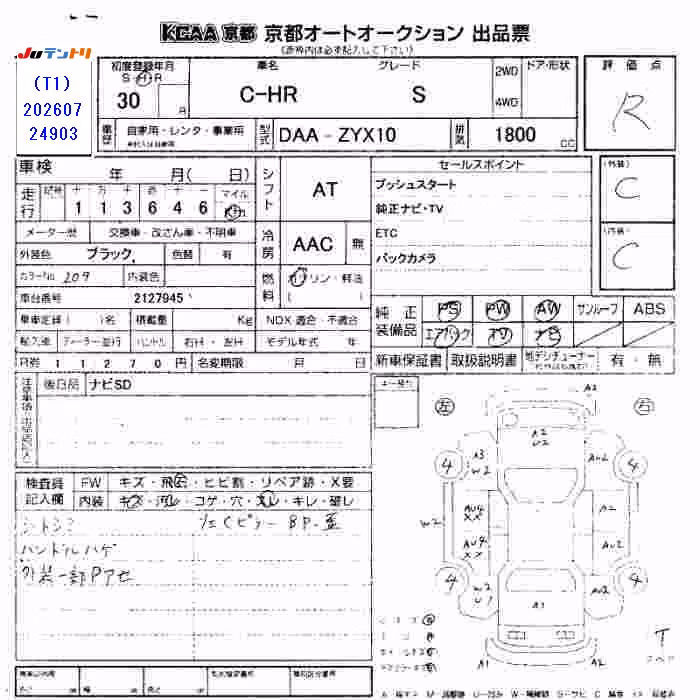 KCAA 京都 京都オートオークション 出品票
(赤枠内は必ず記入して下さい)
JUテントリ
(T1)
202607
24903
初度登録年月
S・H・R
30 月
車名
C-HR
グレード
S
2WD
4WD
ドア・形状
評価点
R
車歴
自家用・レンタ・事業用
型式
DAA - ZYX10
排気
1800 CC
車検 年 月( 日)
走行
1 1 3 6 4 6
マイル
メーター歴 交換車・改ざん車・不明車
外装色 ブラック 色替 有
カラーNo 209 内装色
車台番号 2127945
乗車定員( )名 積載量 Kg
輸入車 ディーラー・並行 ハンドル 右H・左H
R券 11270円 名変期限 月 日
シフト
AT
冷房
AAC 無
燃料
ガソリン・軽油
NOX 適合・不適合
モデル年式 年
セールスポイント
プッシュスタート
純正ナビ・TV
ETC
バックカメラ
(外装)
C
(内装)
C
純正装備品
PS PW AW サンルーフ ABS
エアバック TV ナビ
新車保証書 取扱説明書 地デジチューナー 有・無
後日品 ナビSD
検査員記入欄
FW キズ・飛石・ヒビ割・リペア跡・X要
内装 キズ・汚れ・コゲ・穴・スレ・キレ・破レ
ハンドルハゲ
外装一部Pアセ
左 右
A2
A2
U2
A3
W2
AU2
4 4
W2
AU4
XX
A2
AU4
XX
AU2
4 4
W2
U1
AU2
A1
A1 A2
T